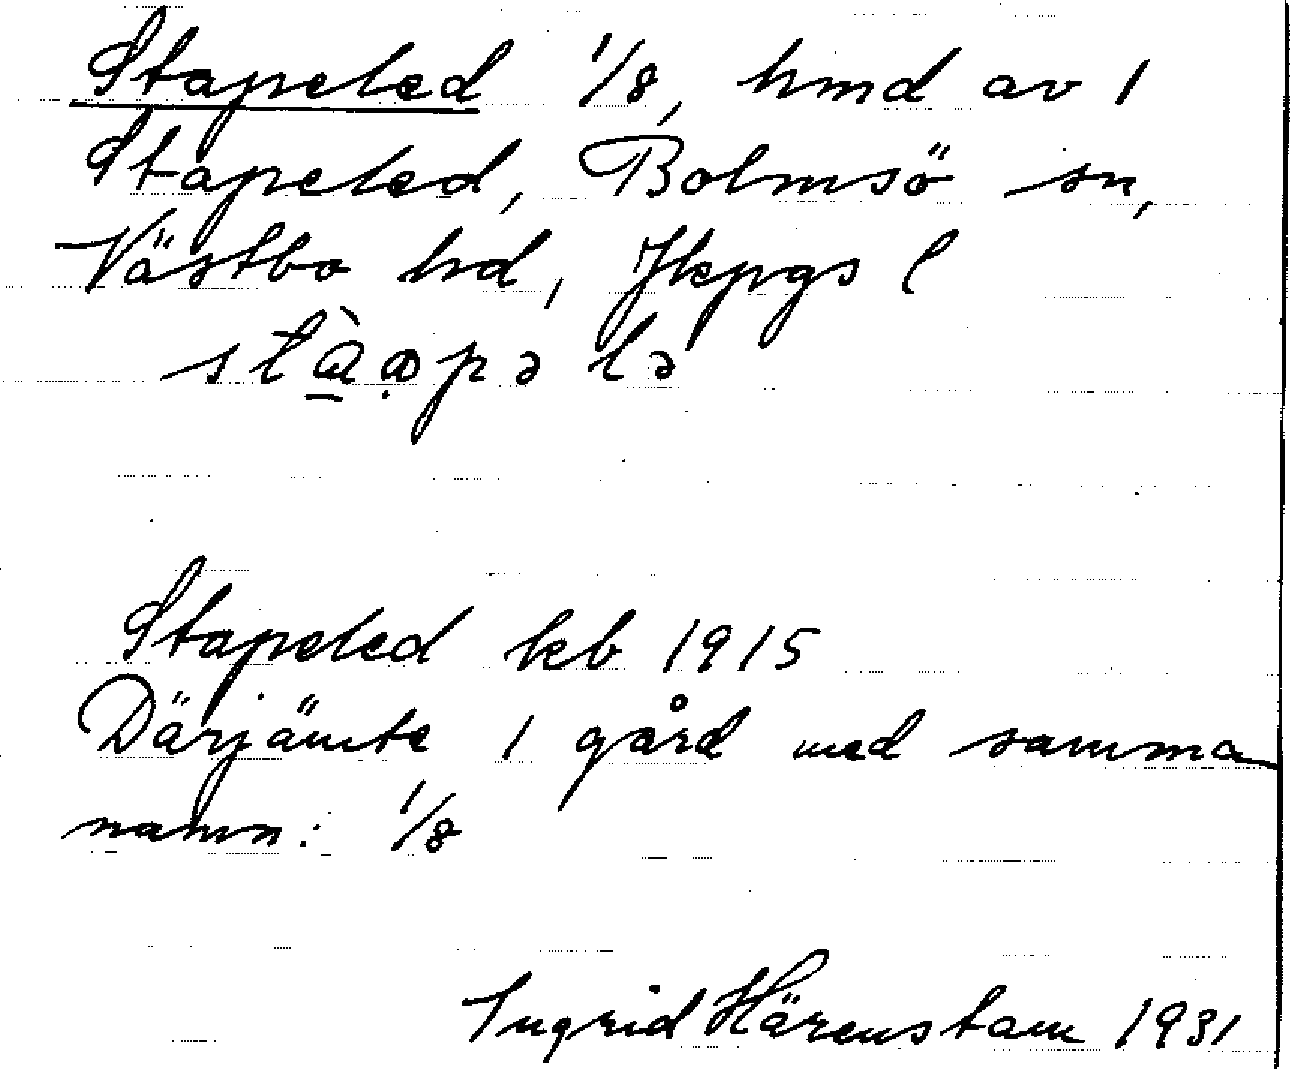 Stapeled 1/8, hmd av 1
Stapeled, Bolmsö sn,
Västbo hd, Jkpgs l
stàapə lə
Stapeled kb 1915
Därjämte 1 gård med samma
namn: 1/8
Ingrid Härenstam 1931